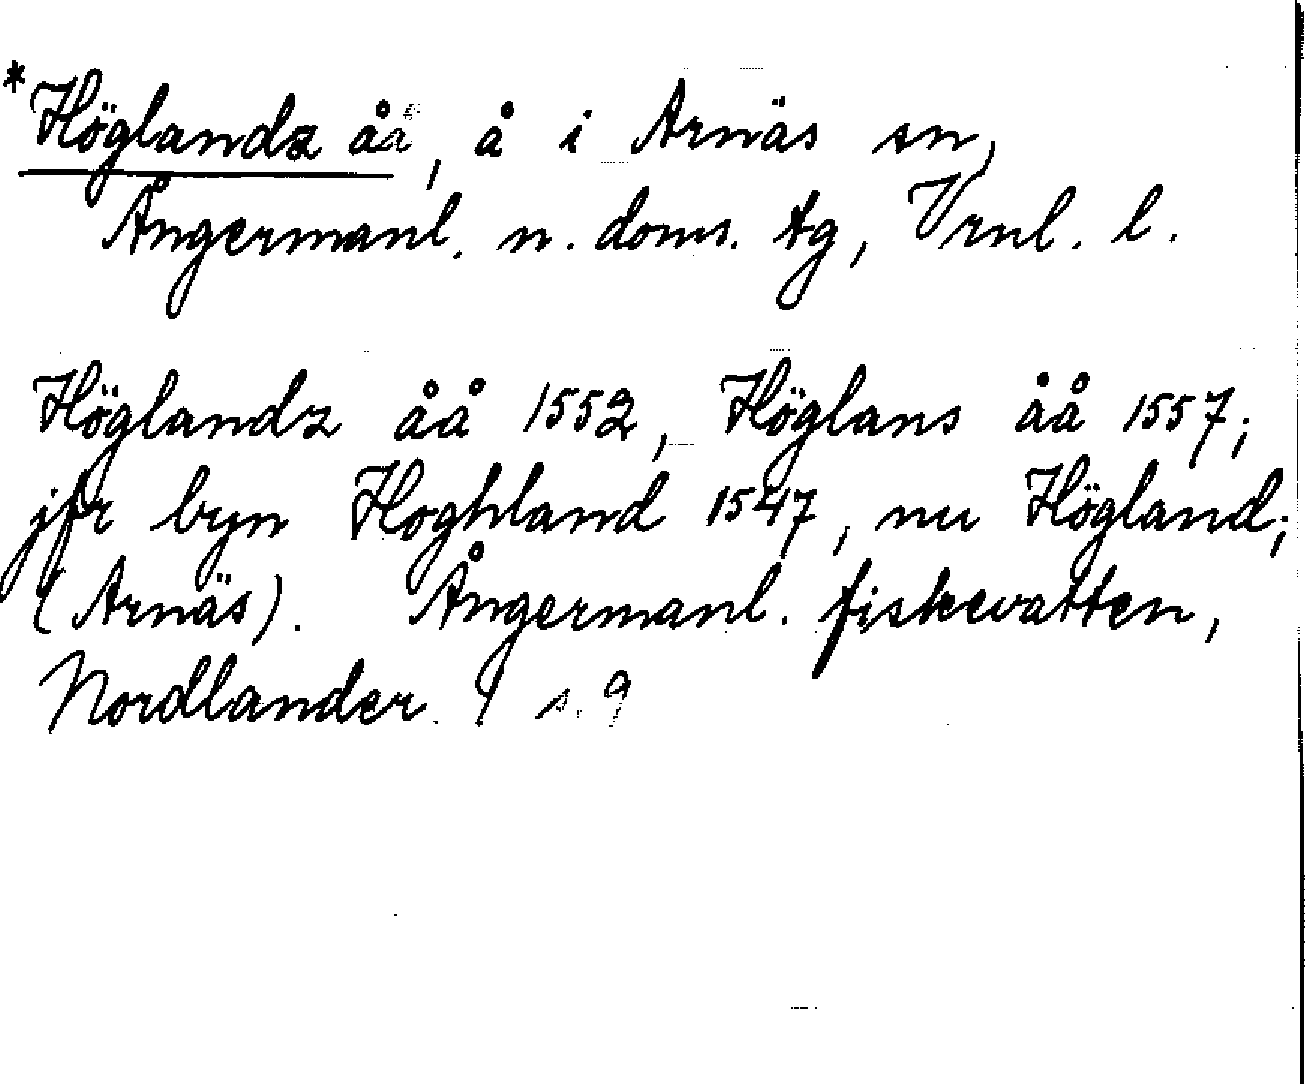 *Höglandz åå, å i Arnäs sn,
Ångermanl. n. doms. tg, Vrnl. l.
Höglandz åå 1552, Höglans åå 1557;
jfr byn Hoghland 1547, nu Högland;
(Arnäs). Ångermanl. fiskevatten,
Nordlander. s. 9